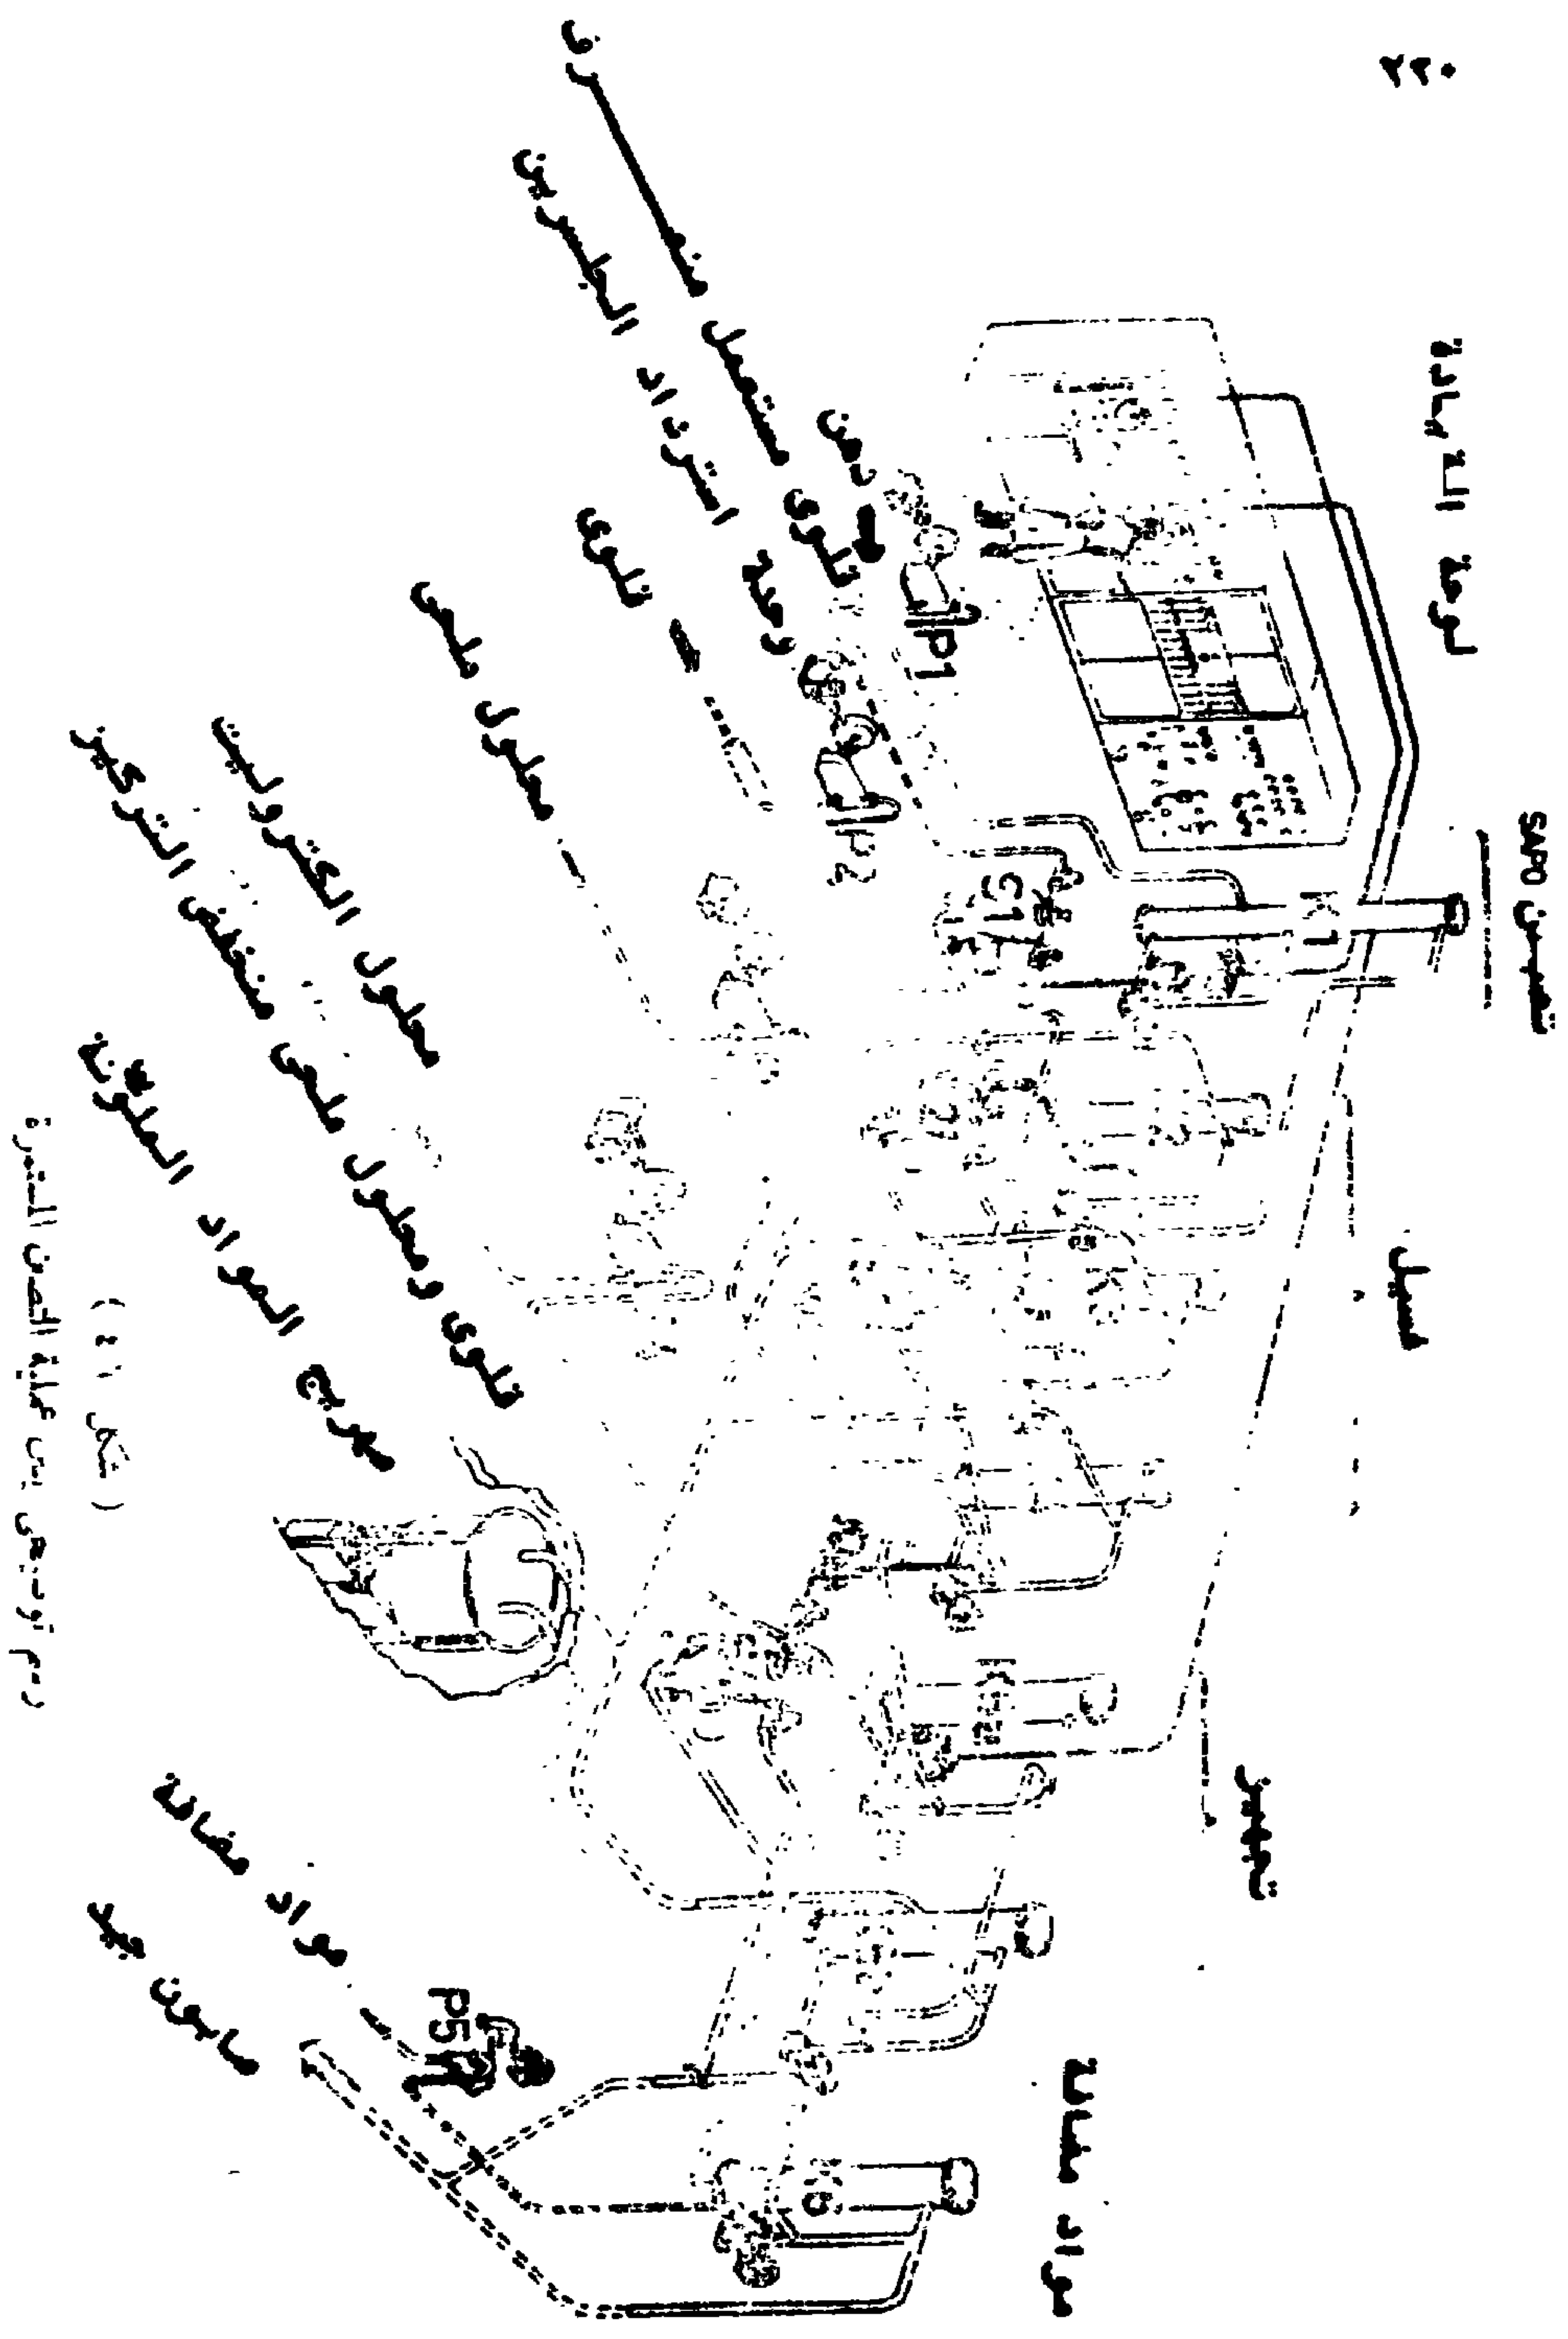 ٢٢٠
لوحة القيادة
تصبين SAPO
غسيل
تجهيز
مواد مضافة
دهن
P1
قلوى مستعمل منصرف
وحدة استرداد الجلسرين
P2
قلوى
محلول ملحى
محلول الكتروليت
قلوى ومحلول ملحى منخفض التركيز
مزج المواد الملونة
مواد مضافة
صابون جيد
K1
C1
P5
K6
( شكل ٤١ )
رسم توضيحى يبين عملية التصبن المستمرة